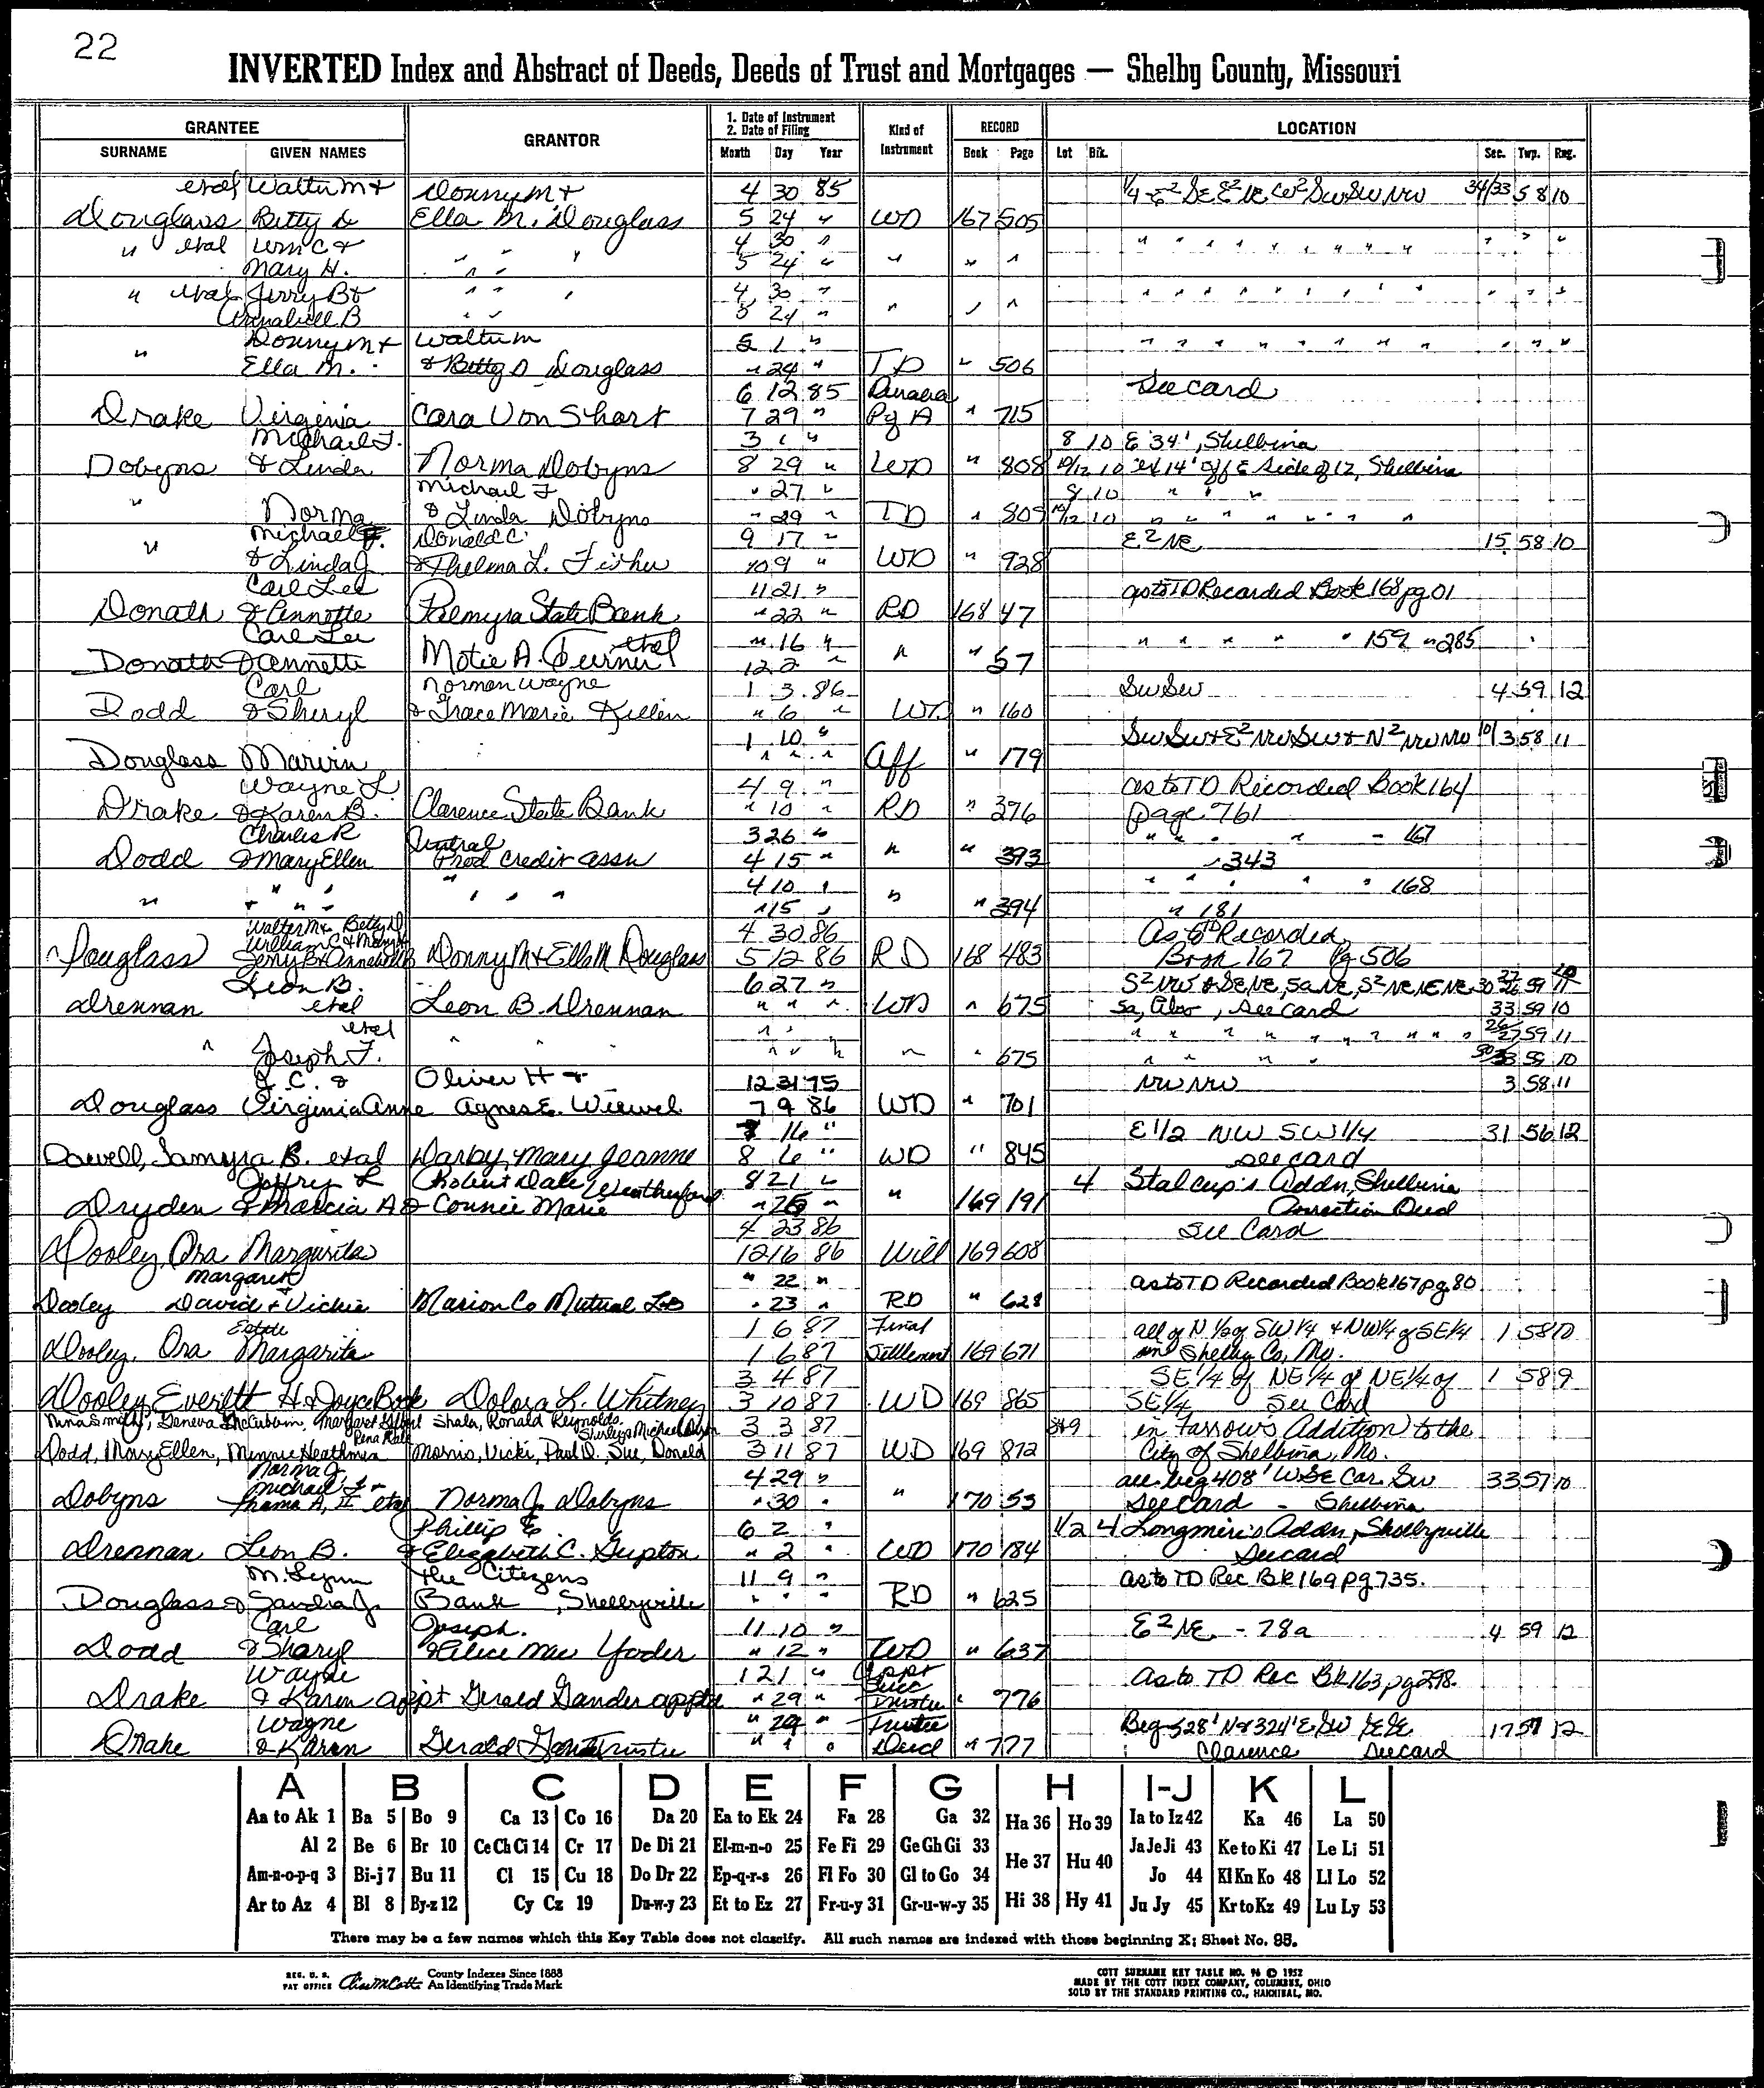 22
INVERTED Index and Abstract of Deeds, Deeds of Trust and Mortgages — Shelby County, Missouri
GRANTEE GRANTOR 1. Date of Instrument 2. Date of Filing Kind of Instrument RECORD LOCATION
SURNAME GIVEN NAMES Month Day Year Book Page Lot Blk. Sec. Twp. Rng.
etal Walter M & Donny M & 4 30 85 34/33 58 10
Douglass Betty D Ella M. Douglass 5 24 " WD 167 505
" etal Wm C & " " " 4 30 " " " " " " " " " " " " " "
Mary H. 5 24 " " " "
" etal Jerry B & " " " 4 30 " " " " " " " " " " " " "
Annabell B " " 5 24 " " " "
Donny M & Walter M 5 1 " " " " " " " " " " " " "
" Ella M. & Betty D Douglass " 24 " TD " 506
6 12 85 See card
Drake Virginia Cara Von Short 7 29 " Pg A " 715
Michael F. 3 1 " 8 10 E 34', Shelbina
Dobyns & Linda Norma Dobyns 8 29 " WD " 808 10/12 10 14' off E side of 12, Shelbina
Michael F " 27 " 8 10 " " "
" Norma & Linda Dobyns " 29 " TD " 809 10/12 10 " " " " " " "
Michael F. Donald C. 9 17 " E² NE 15 58 10
" & Linda J & Thelma L. Fisher 10 9 " WD " 928
Carl Lee 11 21 " as to TD Recorded Book 168 pg 01
Donath & Annette Palmyra State Bank " 22 " RD 168 47
Carl Lee etal " 16 " " " " " " 159 " 285
Donath & Annette Motie A. Turner 12 2 " " " 57
Carl Norman Wayne 1 3 86 SW SW 4 59 12
Dodd & Sheryl & Grace Marie Killen " 6 " WD " 160
1 10 " SW SW & E² NW SW & N² NW NW 10/3 58 11
Douglass Marvin " " " Aff " 179
Wayne L. 4 9 " as to TD Recorded Book 164
Drake & Karen B. Clarence State Bank " 10 " RD " 376 page 761
Charles R Central 3 26 " " " " " 167
Dodd & Mary Ellen Prod Credit Assn 4 15 " " " 393 " 343
" " " " " " " 4 10 " " " " " " 168
" 15 " " " 394 " 181
Walter M & Betty D
William C & Mary H 4 30 86 As to TD Recorded
Douglass Jerry B & Annabell B Donny M & Ella M Douglass 5 12 86 RD 168 483 Book 167 Pg 506
Leon B. 6 27 " S² NW & SE NE, 5a NE, S² NE NE NE
Drennan etal Leon B. Drennan " " " WD " 675 5a, Also, see card 33 59 10
etal " " " " " " " " " " 59 11
" Joseph F. " " " " " " " " 675 " " " " 59 10
J. C. & Oliver H & 12 31 75 NW NW 3 58 11
Douglass Virginia Anne Agnes E. Wiewel 7 9 86 WD " 701
16 " E 1/2 NW SW 1/4 31 56 12
Dowell, Tamyra B. etal Darby, Mary Jeanne 8 6 " WD " 845 see card
Jeffry L Robert Dale Weatherford 8 21 " 4 Stalcup's Addn, Shelbina
Dryden & Marcia A & Connie Marie " 26 " " 169 191 Correction Deed
4 23 86 See Card
Dooley, Ora Margarita 12 16 86 Will 169 608
Margaret " 22 " as to TD Recorded Book 167 pg 80
Dooley David & Vickie Marion Co Mutual " 23 " RD " 628
Estate 1 6 87 Final all of N 1/2 of SW 1/4 & NW 1/4 of SE 1/4 1 58 10
Dooley, Ora Margarita 1 6 87 Settlement 169 671 in Shelby Co, Mo.
3 4 87 SE 1/4 of NE 1/4 of NE 1/4 of 1 58 9
Dooley Everett H. & Joyce Book Dolora L. Whitney 3 10 87 WD 169 865 SE 1/4 See Card
Nina Smith, Geneva McCubbin, Margaret Gilbert Shala, Ronald Reynolds, 3 3 87 8&9 in Farrow's Addition to the
Dodd, Mary Ellen, Minnie Heathman Morris, Vicki, Paul D., Sue, Donald 3 11 87 WD 169 872 City of Shelbina, Mo.
Norma J.
Michael F & 4 29 " all beg 408' W SE Cor. SW 33 57 10
Dobyns Thama A, II etal Norma J. Dobyns " 30 " " 170 53 See card - Shelbina
Phillip E 6 2 " 1/2 4 Longmire's Addn, Shelbyville
Drennan Leon B. & Elizabeth C. Gupton " 2 " WD 170 184 See card
M. Lynn The Citizens 11 9 " as to TD Rec Bk 169 pg 735.
Douglass & Sandra J. Bank, Shelbyville " " " RD " 625
Carl Joseph 11 10 " E² NE - 78a 4 59 12
Dodd & Sharyl & Alice Mae Yoder " 12 " TWD " 637
Wayne 12 1 " Appt Succ as to TD Rec Bk 163 pg 298.
Drake & Karen appt Gerald Gander apptd " 29 " Trustee " 776
Wayne " 29 " Trustee Beg 528' N & 324' E SW SE SE 17 57 12
Drake & Karen Gerald Trustee " " " Deed " 777 Clarence See card
A B C D E F G H I-J K L
Aa to Ak 1 Ba 5 Bo 9 Ca 13 Co 16 Da 20 Ea to Ek 24 Fa 28 Ga 32 Ha 36 Ho 39 Ia to Iz 42 Ka 46 La 50
Al 2 Be 6 Br 10 Ce Ch Ci 14 Cr 17 De Di 21 El-m-n-o 25 Fe Fi 29 Ge Gh Gi 33 He 37 Hu 40 Ja Je Ji 43 Ke to Ki 47 Le Li 51
Am-n-o-p-q 3 Bi-j 7 Bu 11 Cl 15 Cu 18 Do Dr 22 Ep-q-r-s 26 Fl Fo 30 Gl to Go 34 Jo 44 Kl Kn Ko 48 Ll Lo 52
Ar to Az 4 Bl 8 By-z 12 Cy Cz 19 Du-w-y 23 Et to Ez 27 Fr-u-y 31 Gr-u-w-y 35 Hi 38 Hy 41 Ju Jy 45 Kr to Kz 49 Lu Ly 53
There may be a few names which this Key Table does not classify. All such names are indexed with those beginning X; Sheet No. 95.
REG. U. S. PAT OFFICE County Indexes Since 1888 An Identifying Trade Mark
COTT SURNAME KEY TABLE NO. 96 © 1952
MADE BY THE COTT INDEX COMPANY, COLUMBUS, OHIO
SOLD BY THE STANDARD PRINTING CO., HANNIBAL, MO.